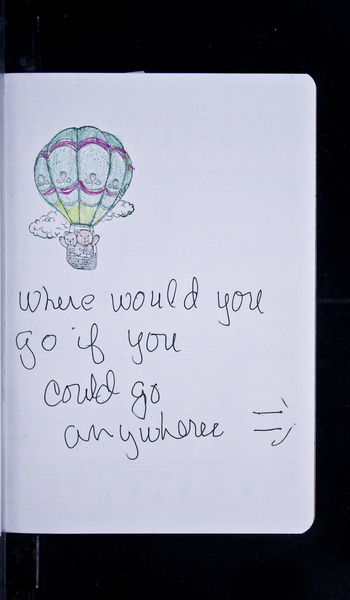 where would you
go if you
could go
anywhere =;)